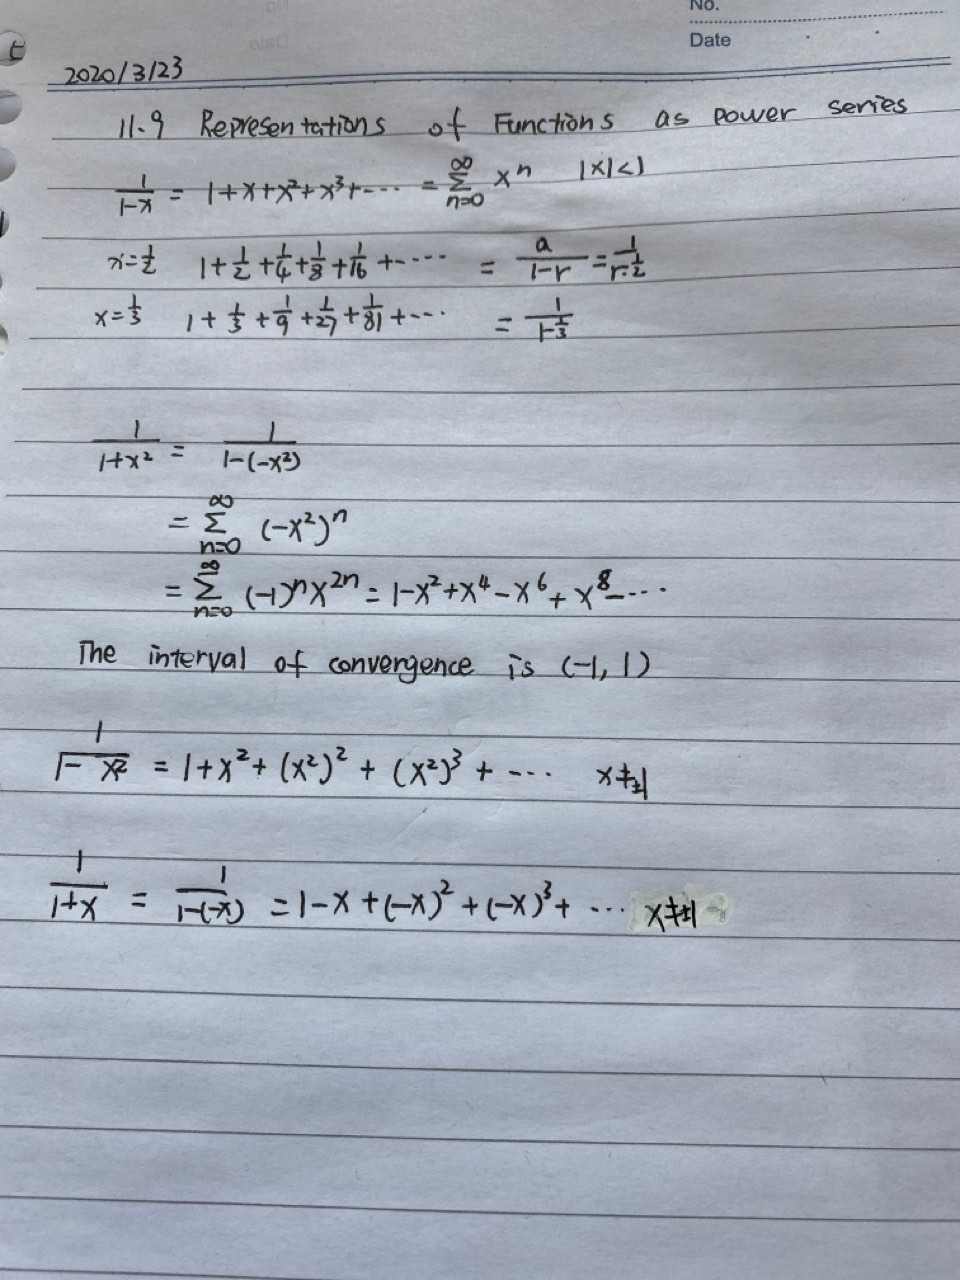 No.
Date
2020/3/23
11.9 Representations of Functions as power series
1/(1-x) = 1+x+x²+x³+---- = ∑_{n=0}^{∞} xⁿ |x|<1
x=1/2 1+1/2+1/4+1/8+1/16+---- = a/(1-r) = 1/(1-1/2)
x=1/3 1+1/3+1/9+1/27+1/81+--- = 1/(1-1/3)
1/(1+x²) = 1/(1-(-x²))
= ∑_{n=0}^{∞} (-x²)ⁿ
= ∑_{n=0}^{∞} (-1)ⁿx²ⁿ = 1-x²+x⁴-x⁶+x⁸-...
The interval of convergence is (-1, 1)
1/(1-x²) = 1+x²+(x²)²+(x²)³+ --- x≠±1
1/(1+x) = 1/(1-(-x)) = 1-x+(-x)²+(-x)³+ --- x≠±1